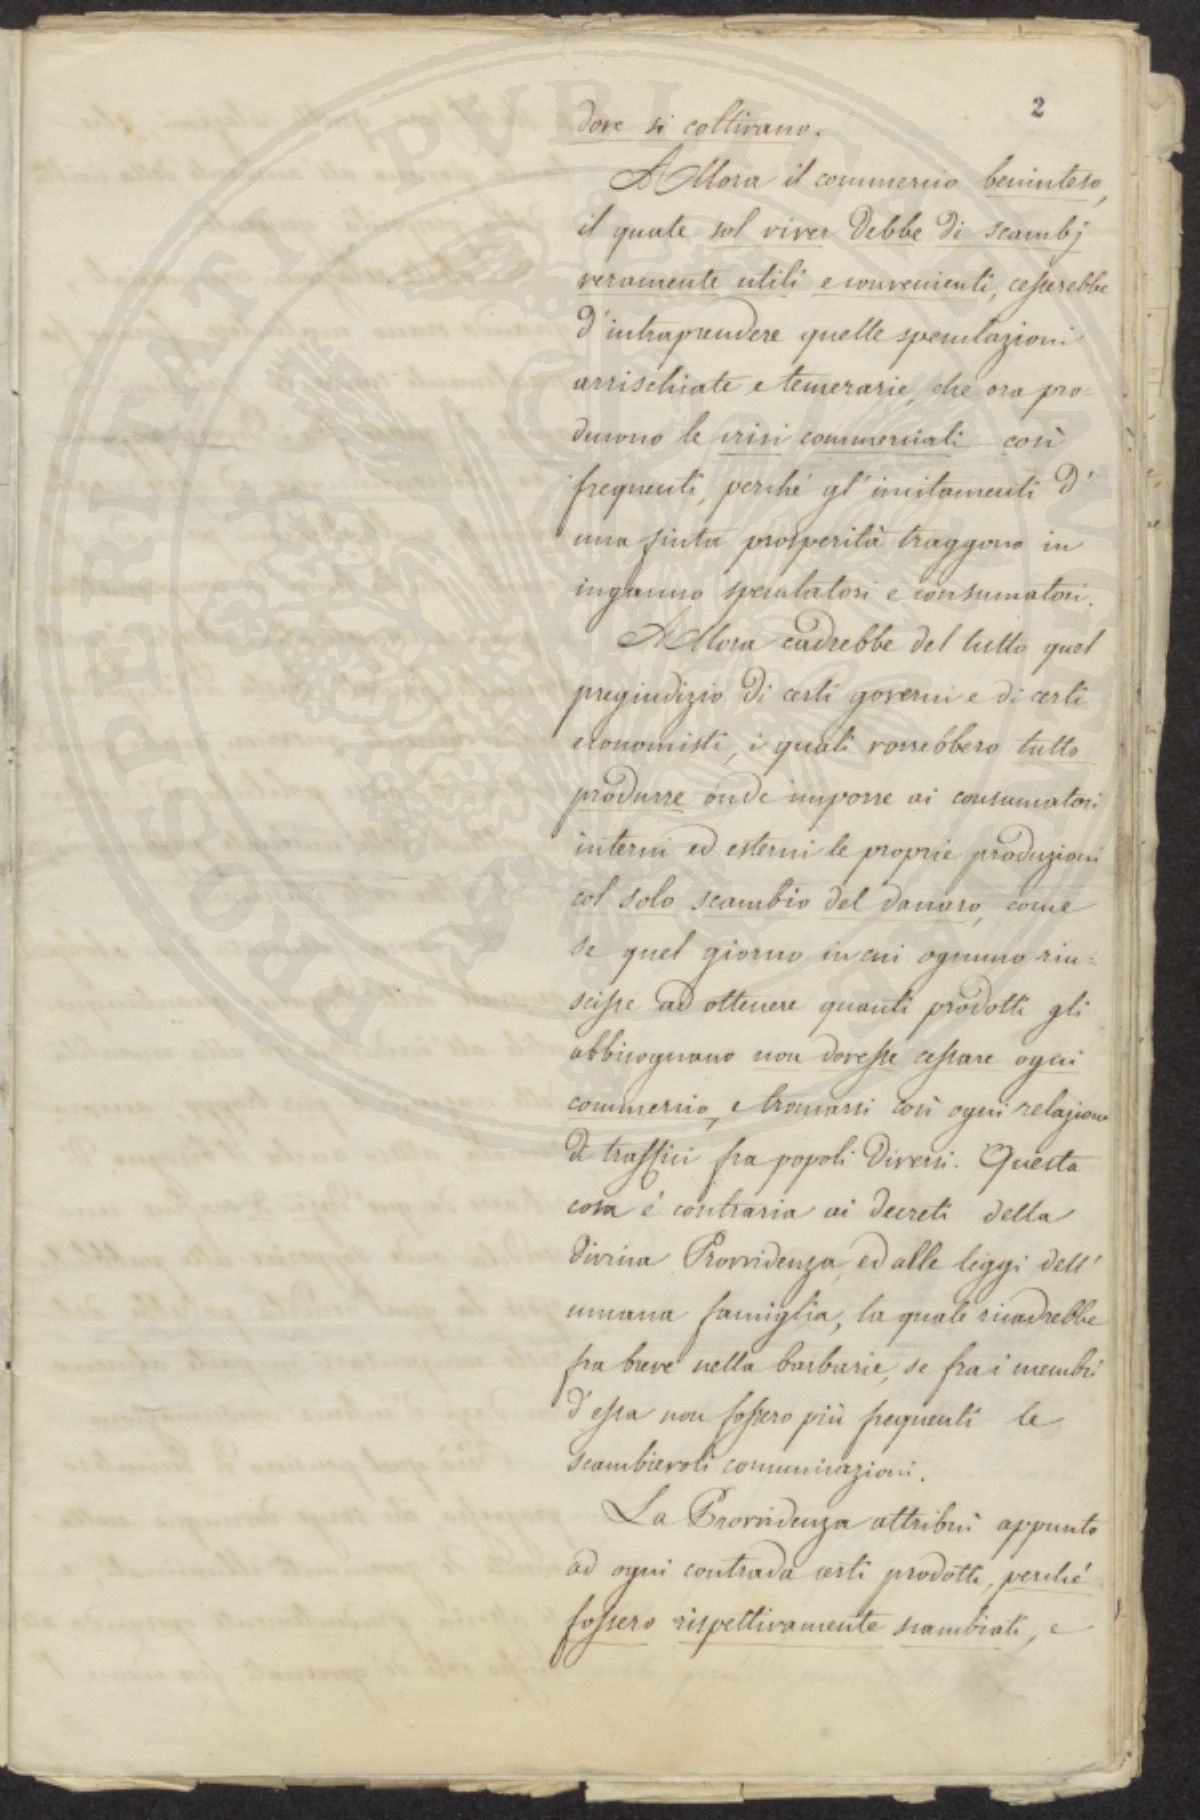 2
dove si coltivano.
Allora il commercio beninteso,
il quale sol viver debbe di scambj
veramente utili e convenienti, cesserebbe
d'intraprendere quelle speculazioni
arrischiate e temerarie, che ora pro=
ducono le crisi commerciali così
frequenti, perché gl'incitamenti d'
una finta prosperità traggono in
inganno speculatori e consumatori.
Allora cadrebbe del tutto quel
pregiudizio di certi governi e di certi
economisti, i quali vorrebbero tutto
produrre onde imporre ai consumatori
interni ed esterni le proprie produzioni
col solo scambio del danaro, come
se quel giorno in cui ognuno riu=
scisse ad ottenere quanti prodotti gli
abbisognano non dovesse cessare ogni
commercio, e troncarsi così ogni relazione
di traffici fra popoli diversi. Questa
cosa è contraria ai decreti della
divina Provvidenza, ed alle leggi dell'
umana famiglia, la quale ricadrebbe
fra breve nella barbarie, se fra i membri
d'essa non fossero più frequenti le
scambievoli comunicazioni.
La Provvidenza attribuì appunto
ad ogni contrada certi prodotti, perché
fossero rispettivamente scambiati, e